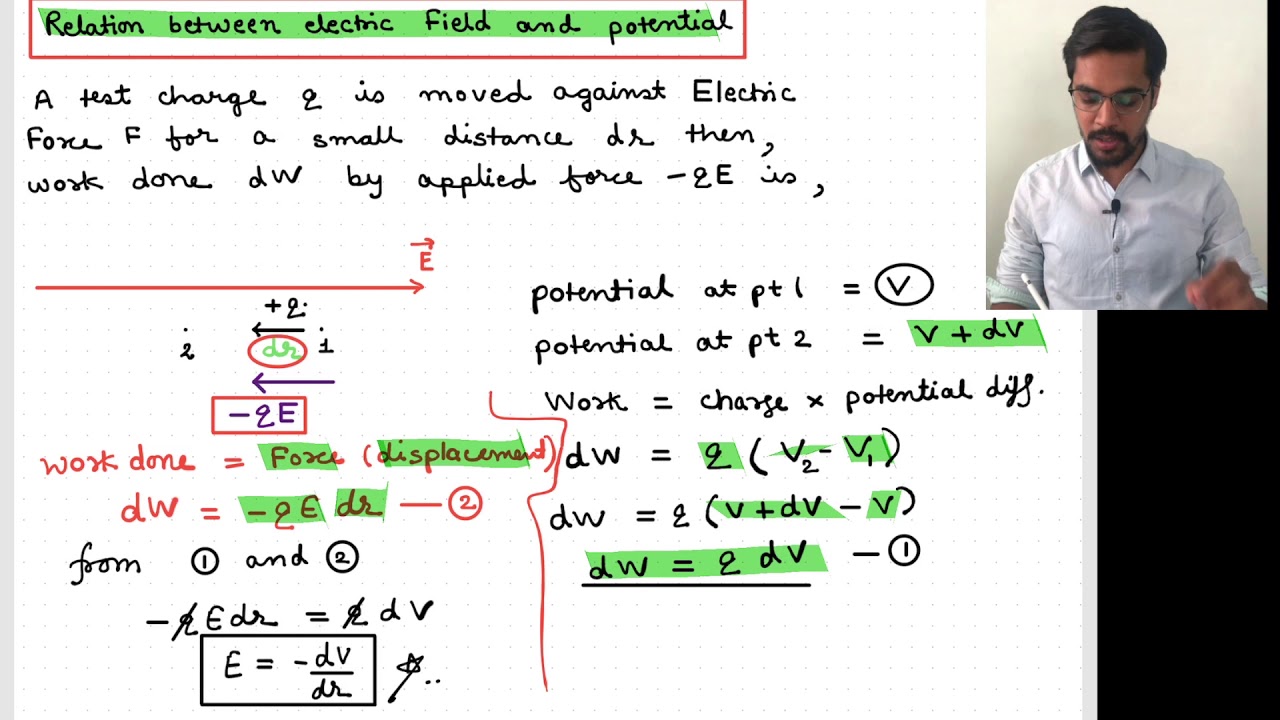 Relation between electric Field and potential
A test charge q is moved against Electric
Force F for a small distance dr then,
work done dW by applied force -qE is,
E
+q
2 dr 1
-qE
work done = Force (displacement)
dW = -qE dr — ②
from ① and ②
-qEdr = q dV
E = -dV/dr
potential at pt 1 = V
potential at pt 2 = V + dV
Work = charge × potential diff.
dW = q (V₂ - V₁)
dW = q (V + dV - V)
dW = q dV — ①